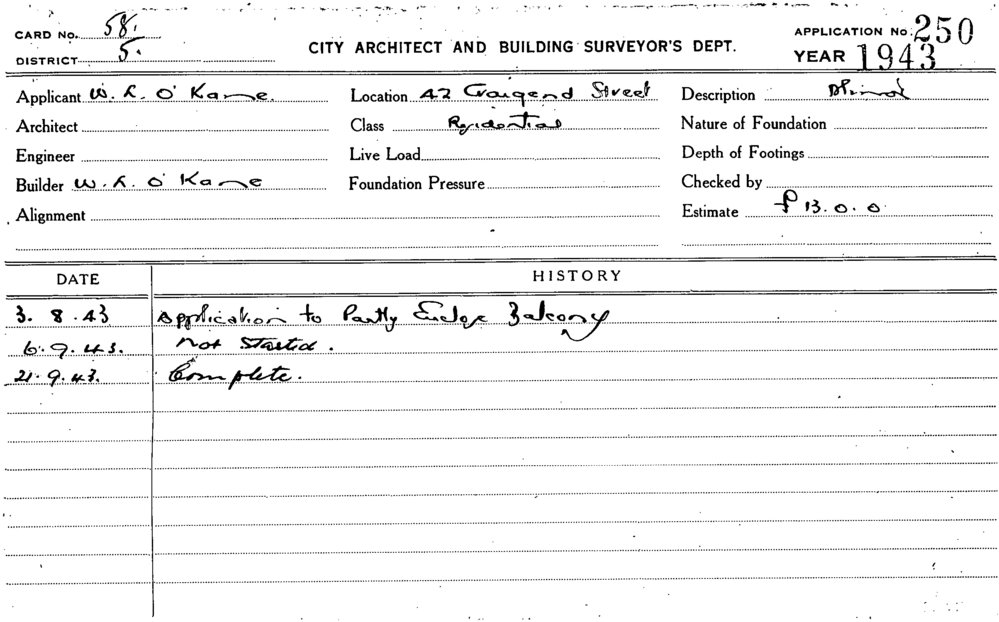 CARD No. 58.
APPLICATION No. 250
DISTRICT 5.
CITY ARCHITECT AND BUILDING SURVEYOR'S DEPT.
YEAR 1943
Applicant W. R. O'Kane.
Location 42 Craigend Street
Description
Architect
Class Residential
Nature of Foundation
Engineer
Live Load
Depth of Footings
Builder W. R. O'Kane
Foundation Pressure
Checked by
Alignment
Estimate £ 13. 0. 0.
DATE
HISTORY
3. 8. 43 Application to Partly Enclose Balcony
6. 9. 43. Not Started.
21. 9. 43. Complete.